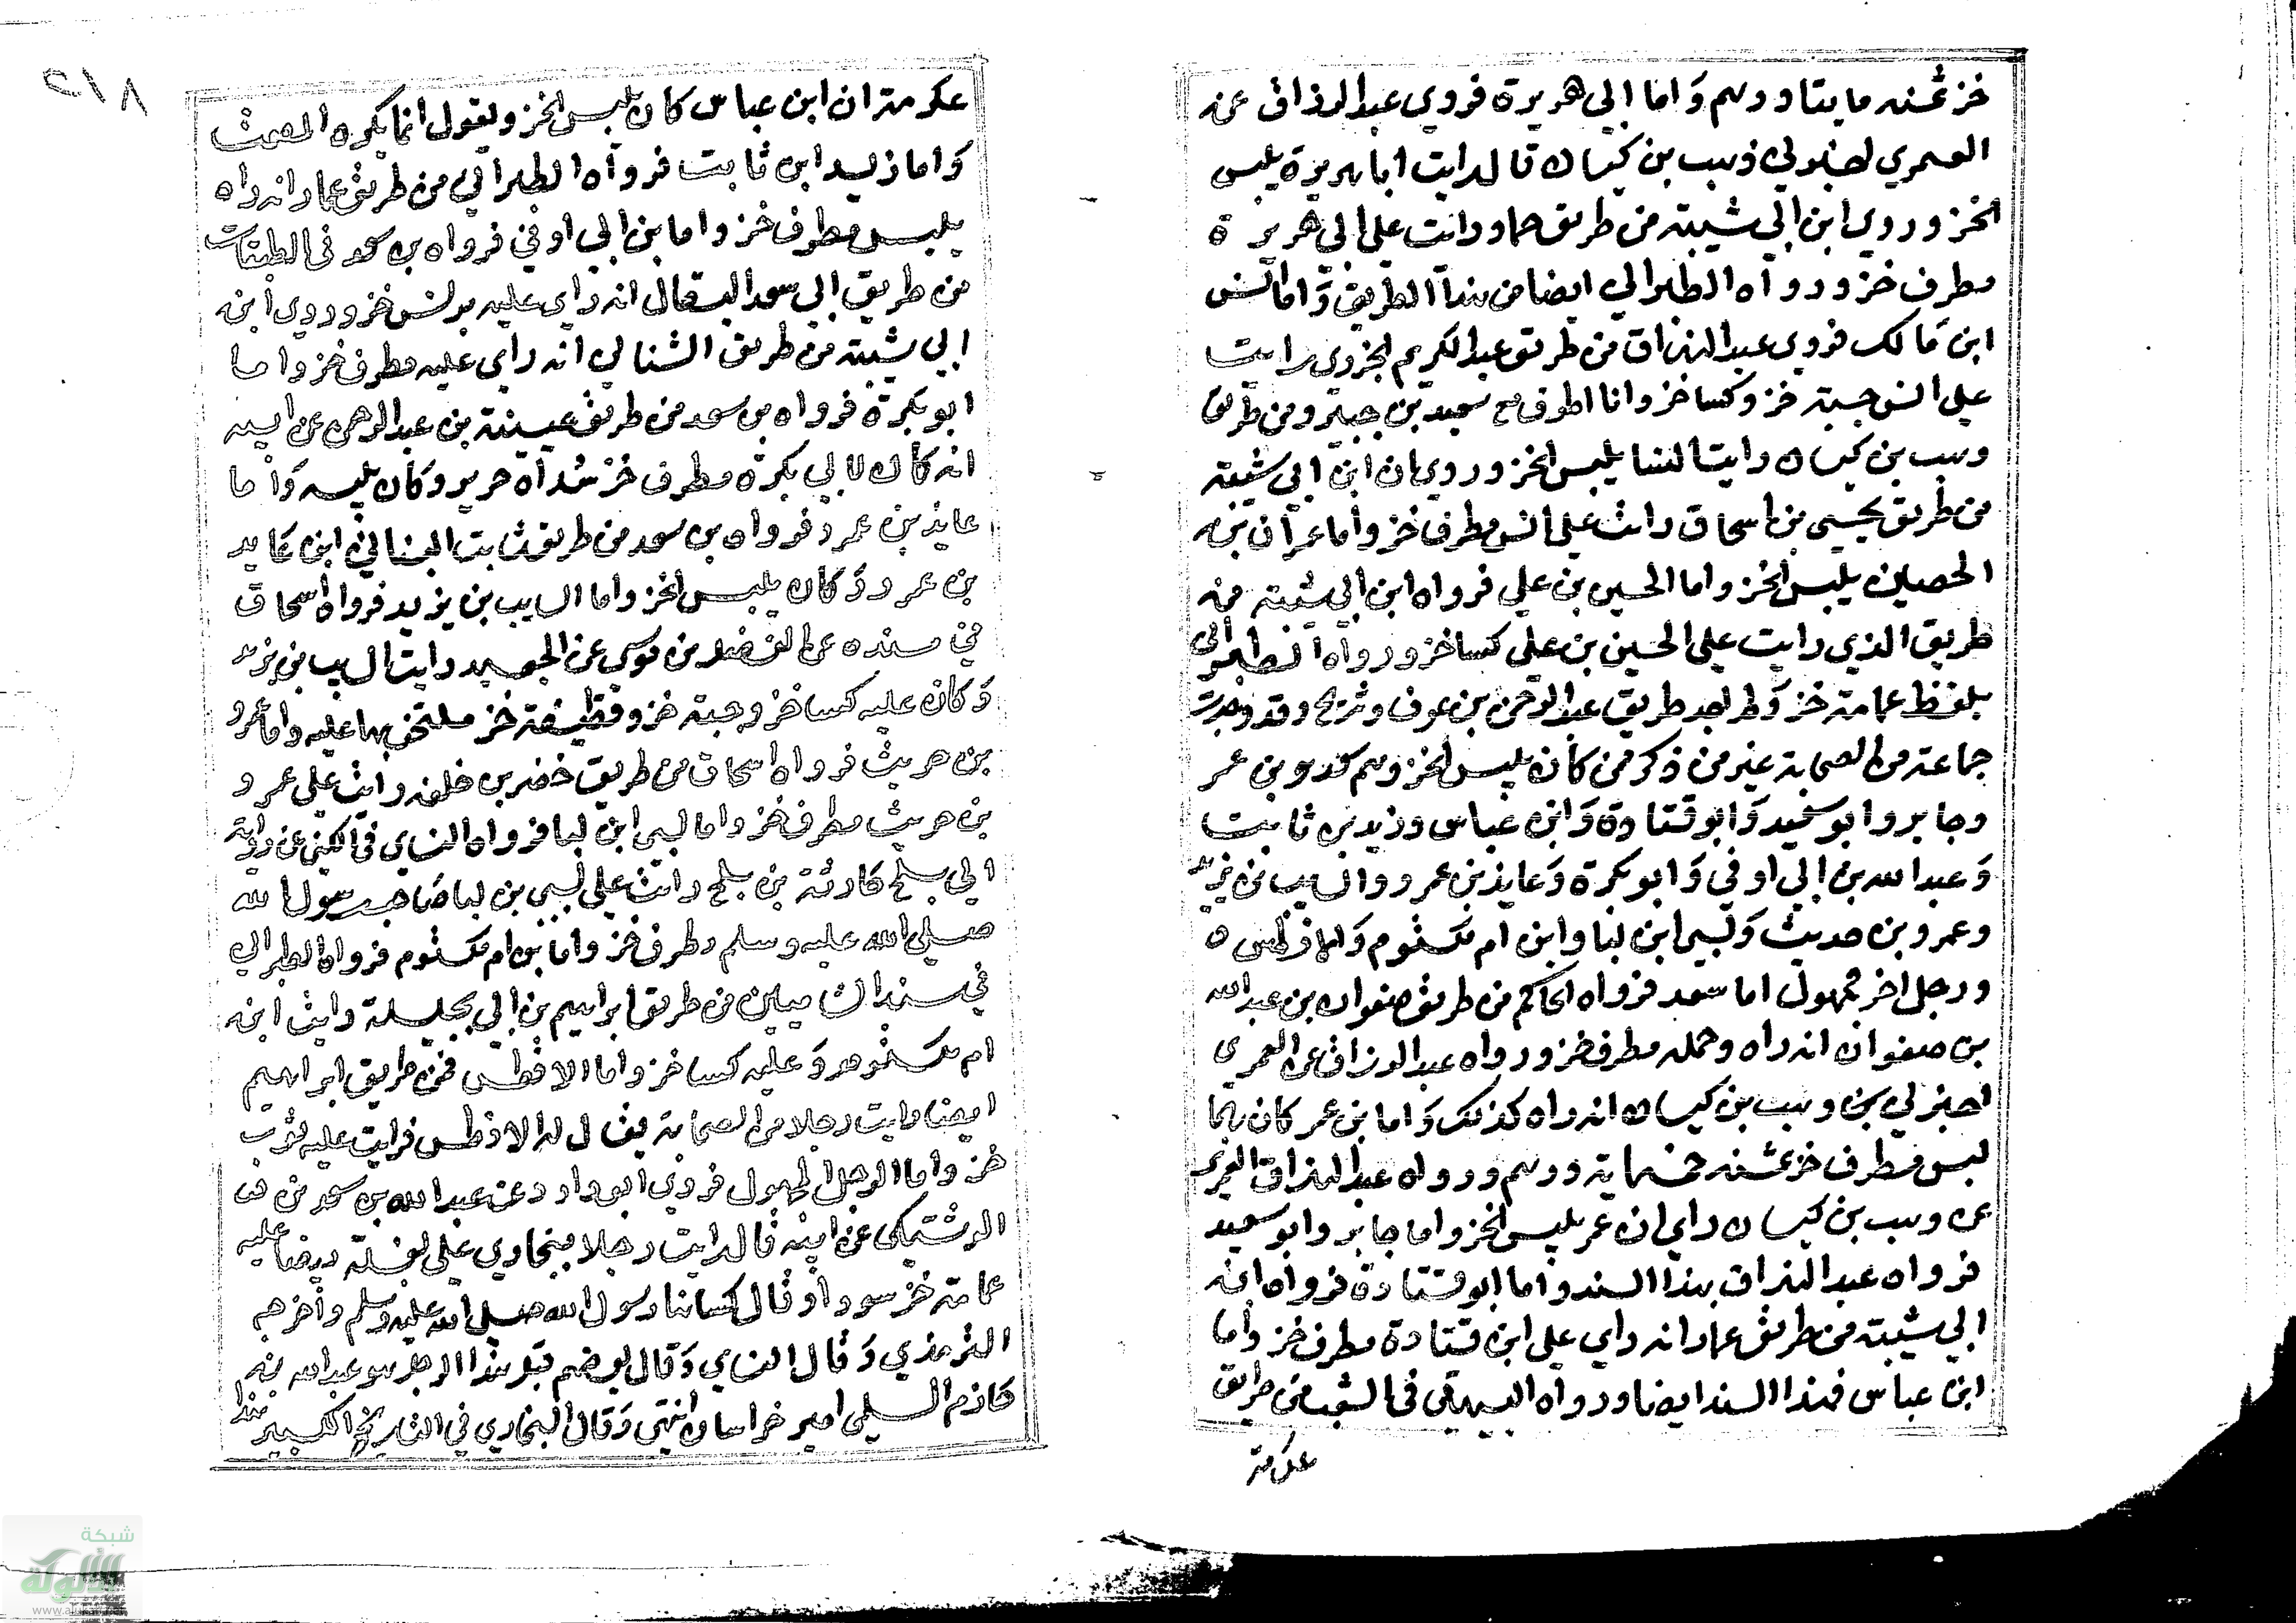 خز ثمنه مايتا درهم وَاما ابي هريرة فروي عبد الرزاق عن
العمري اخبرني وهب بن كيسان قال رايت ابا هريرة يلبس
الخز وروي ابن ابي شيبة من طريق عمار رايت علي ابي هريرة
مطرف خز ورواه الطبراني ايضا من هذا الطريق وَاما انس
ابن مَالك فروي عبد الرزاق من طريق عبد الكريم الجزري رايت
علي انس جبة خز وكسا خز وانا اطوف مع سعيد بن جبير ومن طريق
وهب بن كيسان رايت انسا يلبس الخز وروي ابن ابي شيبة
من طريق يحيي بن اسحاق رايت علي انس مطرف خز واما عمران بن
الحصين يلبس الخز واما الحسين بن علي فرواه ابن ابي شيبة من
طريق الذي رايت علي الحسين بن علي كسا خز ورواه الطبراني
بلفظ عمامة خز طريق عبد الرحمن بن عوف وشريح وقد وجدت
جماعة من الصحابة غير من ذكر من كان يلبس الخز وهم سعد وبن عمر
وجابر وابو سَعيد وَابو قتادة وَابن عباس وزيد بن ثابت
وَعبد الله بن ابي اوفي وَابو بكرة وَعايذ بن عمرو والسايب بن يزيد
وعمرو بن حريث وَلبي ابن لبا وابن ام مكتوم وَالافطس
ورجل اخر مجهول اما سعد فرواه الحاكم من طريق صفوان بن عبد الله
بن صفوان انه راه وعليه مطرف خز ورواه عبد الرزاق عن العمري
اخبرني وهب بن كيسان انه راه كذلك وَاما بن عمر كان ربما
لبس مطرف خز ثمنه خمسماية درهم ورواه عبد الرزاق العمري
عن وهب بن كيسان راي ابن عمر يلبس الخز واما جابر وابو سعيد
فرواه عبد الرزاق بهذا السند واما ابو قتادة فرواه ابن
ابي شيبة من طريق عمار انه راي علي ابن قتادة مطرف خز وأما
ابن عباس فبهذا السند ايضا ورواه البيهقي في الشعب من طريق
عكرمة
٢١٨
عكرمة ان ابن عباس كان يلبس الخز ويقول انما يكره المصمت
وَاما زيد ابن ثابت فرواه الطبراني من طريق عمار انه راه
يلبس مطرف خز واما بن ابي اوفي فرواه بن سعد في الطبقات
من طريق ابي سعد البقال انه راي عليه برنس خز وروي ابن
ابي شيبة من طريق الشيباني انه راي عليه مطرف خز واما
ابو بكرة فرواه بن سعد من طريق عيينة بن عبد الرحمن عن ابيه
انه كان لابي بكرة مطرف خز سداه حرير وكان يلبسه وَاما
عايذ بن عمرو فرواه بن سعد من طريق ثابت البناني ابن عايد
بن عمرو كان يلبس الخز واما السايب بن يزيد فرواه اسحاق
في مسنده عن الفضل بن موسى عن الجعيد رايت السايب بن يزيد
وَكان عليه كسا خز وجبة خز وقطيفة خز ملتحف بها عليه واما عمرو
بن حريث فرواه اسحاق من طريق خضر بن خلفه رايت علي عمرو
بن حريث مطرف خز واما لبي ابن لبا فرواه النساي في الكني عن رواية
ابي بلج جارية بن بلج رايت علي لبي بن لبا صَاحب رسول الله
صلي الله عليه وسلم مطرف خز واما بن ام مكتوم فرواه الطبراني
في مسند الشاميين من طريق ابراهيم بن ابي عبلة رايت ابن
ام مكتوم وَعليه كسا خز واما الافطس فمن طريق ابراهيم
ايضا رايت رجلا من الصحابة يقال له الافطس فرايت عليه ثوب
خز واما الرجل المجهول فروي ابو داود عن عبد الله بن سعد
الدشتكي عن ابيه قال رايت رجلا ببخاري علي بغلة بيضا عليه
عمامة خز سودا وقال كسانيها رسول الله صلي الله عليه وسلم واخرجه
الترمذي وَقال النساي وَقال بعضهم قيل هذا الرجل هو عبد الله بن
خازم السلمي امير خراسان انتهي وَقال البخاري في التاريخ الكبير هذا
شبكة
الألوكة